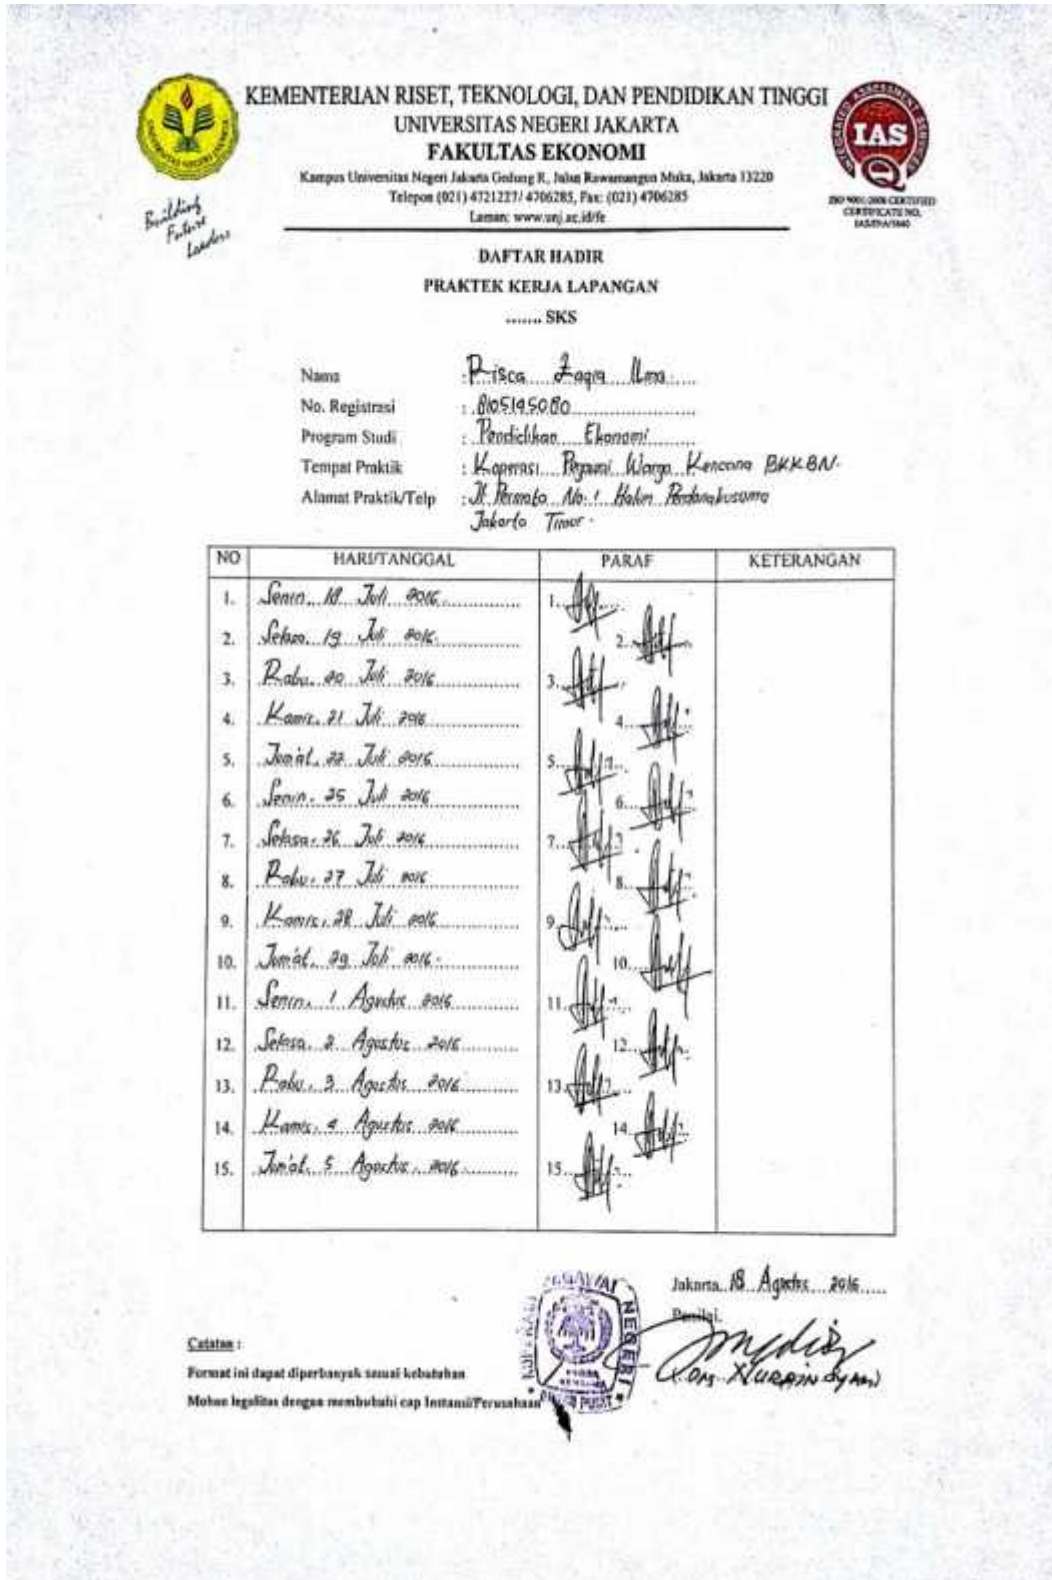 KEMENTERIAN RISET, TEKNOLOGI, DAN PENDIDIKAN TINGGI
UNIVERSITAS NEGERI JAKARTA
FAKULTAS EKONOMI
Kampus Universitas Negeri Jakarta Gedung R, Jalan Rawamangun Muka, Jakarta 13220
Telepon (021) 4721227/ 4706285, Fax: (021) 4706285
Laman: www.unj.ac.id/fe
Building
Future
Leaders
IAS
ISO 9001:2008 CERTIFIED
CERTIFICATE NO.
DAFTAR HADIR
PRAKTEK KERJA LAPANGAN
....... SKS
Nama : Risca Zaqia Ilma
No. Registrasi : 8105195080
Program Studi : Pendidikan Ekonomi
Tempat Praktik : Koperasi Pegawai Warga Kencana BKKBN.
Alamat Praktik/Telp : Jl. Permata No. 1 Halim Perdanakusuma
Jakarta Timur.
NO HARI/TANGGAL PARAF KETERANGAN
1. Senin, 18 Juli 2016 1.
2. Selasa, 19 Juli 2016. 2.
3. Rabu, 20 Juli 2016 3.
4. Kamis, 21 Juli 2016 4.
5. Jum'at, 22 Juli 2016 5.
6. Senin, 25 Juli 2016 6.
7. Selasa, 26 Juli 2016 7.
8. Rabu, 27 Juli 2016 8.
9. Kamis, 28 Juli 2016 9.
10. Jum'at, 29 Juli 2016. 10.
11. Senin, 1 Agustus 2016 11.
12. Selasa, 2 Agustus 2016 12.
13. Rabu, 3 Agustus 2016 13.
14. Kamis, 4 Agustus 2016 14.
15. Jum'at, 5 Agustus, 2016. 15.
Jakarta, 18 Agustus 2016
Penilai,
KOPERASI PEGAWAI NEGERI
PUSAT
Catatan :
Format ini dapat diperbanyak sesuai kebutuhan
Mohon legalitas dengan membubuhi cap Instansi/Perusahaan